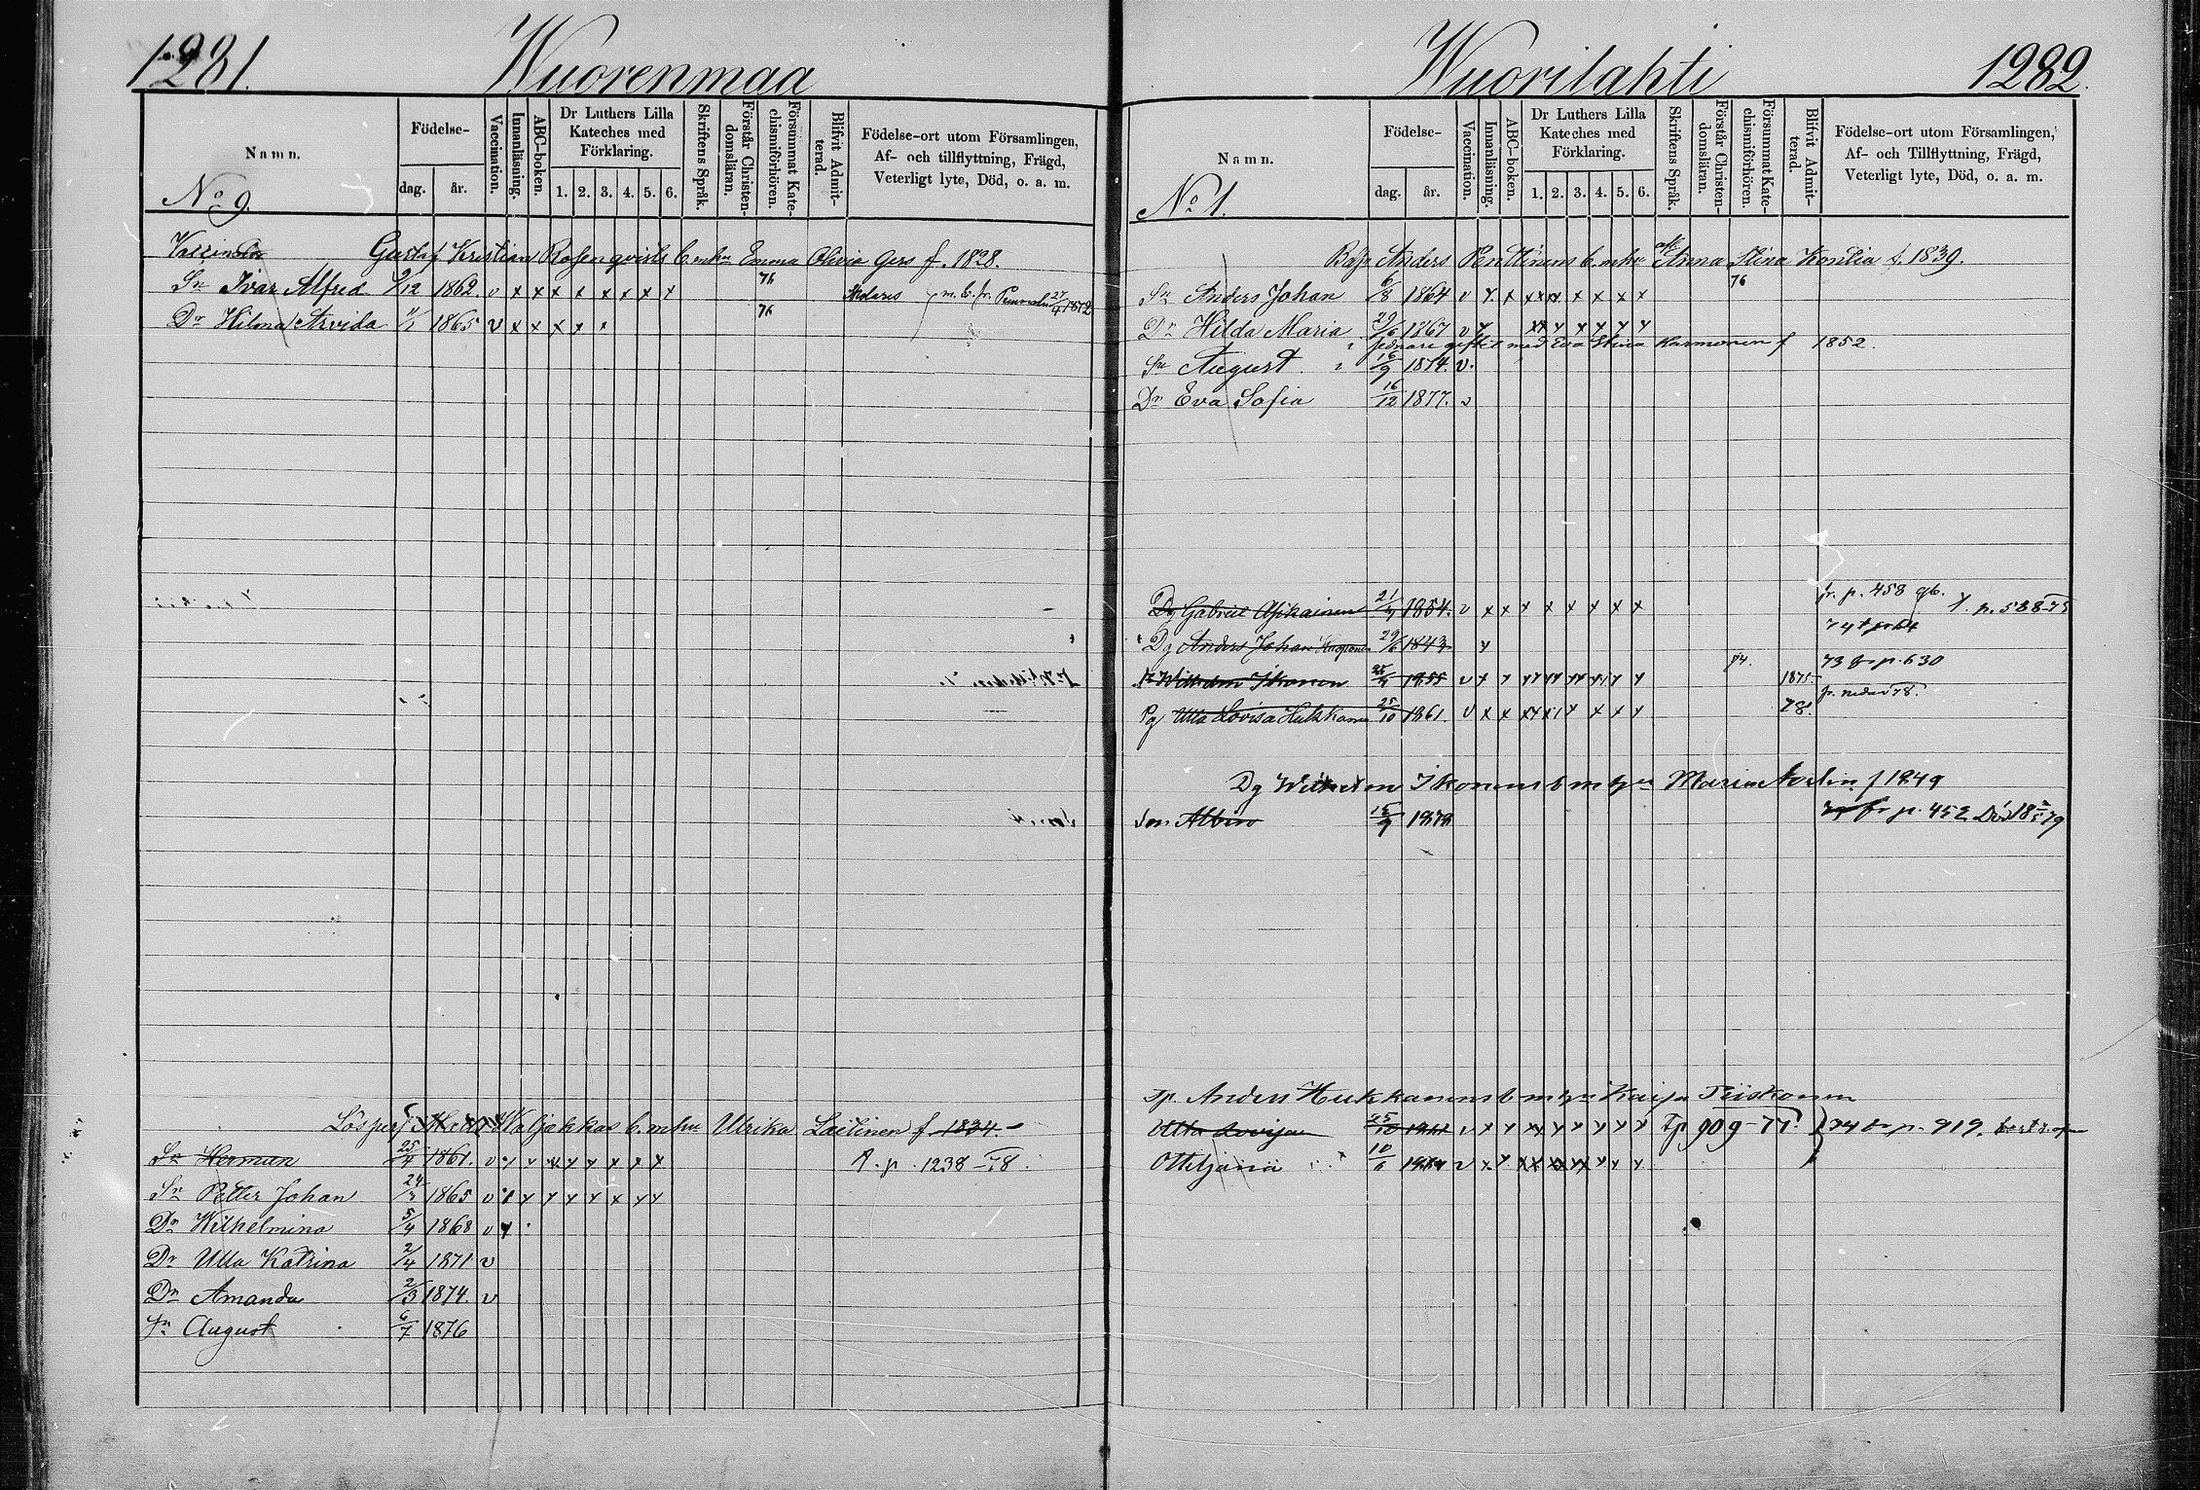 1281. Wuorenmaa
Namn.
Födelse-
dag. år.
Vaccination.
Innanläsning.
ABC-boken.
Dr Luthers Lilla Kateches med Förklaring.
1. 2. 3. 4. 5. 6.
Skriftens Språk.
Förstår Christendomsläran.
Försummat Katechismiförhören.
Blifvit Admitterad.
Födelse-ort utom Församlingen, Af- och tillflyttning, Frägd, Veterligt lyte, Död, o. a. m.
No 9.
Gustaf Kristian Rosenqvists b. m. hu Emma Olivia Gers f. 1828.
Sn Ivar Alfred 9/12 1862. v x x x x x x x x 76 m. b. fr. 27/4 1872
Dr Hilma Arvida 1/1 1865 v x x x x x 76
Waljakkas b. m. hu Ulrika Laitinen f. 1834.
Sn Herman 25/4 1861. p. 1238-78.
Sn Petter Johan 24/3 1865 v
Dr Wilhelmina 5/4 1868 v
Dr Ulla Katrina 2/4 1871 v
Dr Amanda 2/3 1874. v
Sn August 6/7 1876
Wuorilahti 1282.
Namn.
Födelse-
dag. år.
Vaccination.
Innanläsning.
ABC-boken.
Dr Luthers Lilla Kateches med Förklaring.
1. 2. 3. 4. 5. 6.
Skriftens Språk.
Förstår Christendomsläran.
Försummat Katechismiförhören.
Blifvit Admitterad.
Födelse-ort utom Församlingen, Af- och Tillflyttning, Frägd, Veterligt lyte, Död, o. a. m.
No 1.
Anders Penttinens b. m. hu Anna Stina Kontia f. 1839.
Sn Anders Johan 6/8 1864 v 76
Dr Hilda Maria 29/6 1867 v
sednare giftet med Eva Stina Harmonen f 1852.
Sn August 16/9 1874. v.
Dr Eva Sofia 16/12 1877. v
Dg Gabriel 21/4 1854. v x x x x x x x x fr. p. 458 p. 588-75
Dg Anders Johan 29/6 1843
Wilhelm Ikonen 25/4 1855 v 74. 1875 73 fr p. 630
Pg Ulla Lovisa Hukkanen 25/10 1861. v 78.
Dg Wilhelm Ikonens b m hu Maria f 1849
Son Albin 15/9 1878 fr p. 452 Död
Anders Hukkanens b m hu Kaisa Tiiskonen
Ulla Lovisa 25/10 1861 v 909-77. 74 fr p. 919.
Ottiljana 10/6 v